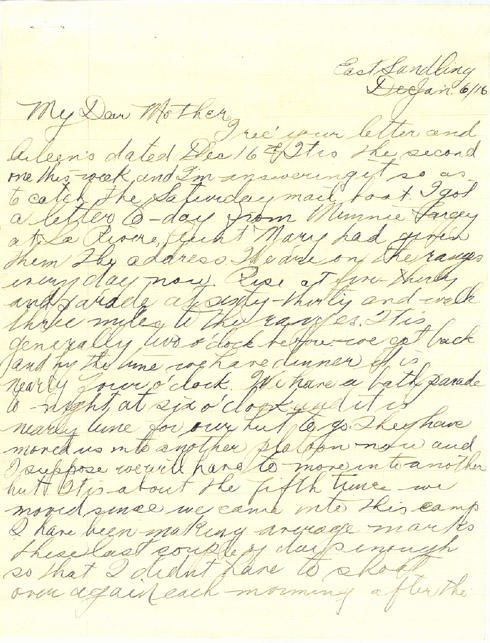 East Sandling
Dec Jan 6/16
My Dear Mother
I rec' your letter and
Aileen's dated Dec 16th It is the second
one this week and I'm answering it so as
to catch the Saturday mail boat. I got
a letter to-day from Minnie
at La Riviere, Aunt Mary had given
them the address We are on the ranges
every day now. Rise at five-thirty
and parade at sixty-thirty and walk
three miles to the ranges. It is
generally two o'clock before we get back
and by the time we have dinner it is
nearly four o'clock. We have a bath parade
to-night at six o'clock and it is
nearly time for our hut to go They have
moved us into another platoon now and
I suppose we will have to move into another
hut It is about the fifth time we
moved since we came into this camp
I have been making average marks
these last couple of days enough
so that I didn't have to shoot
over again each morning after the